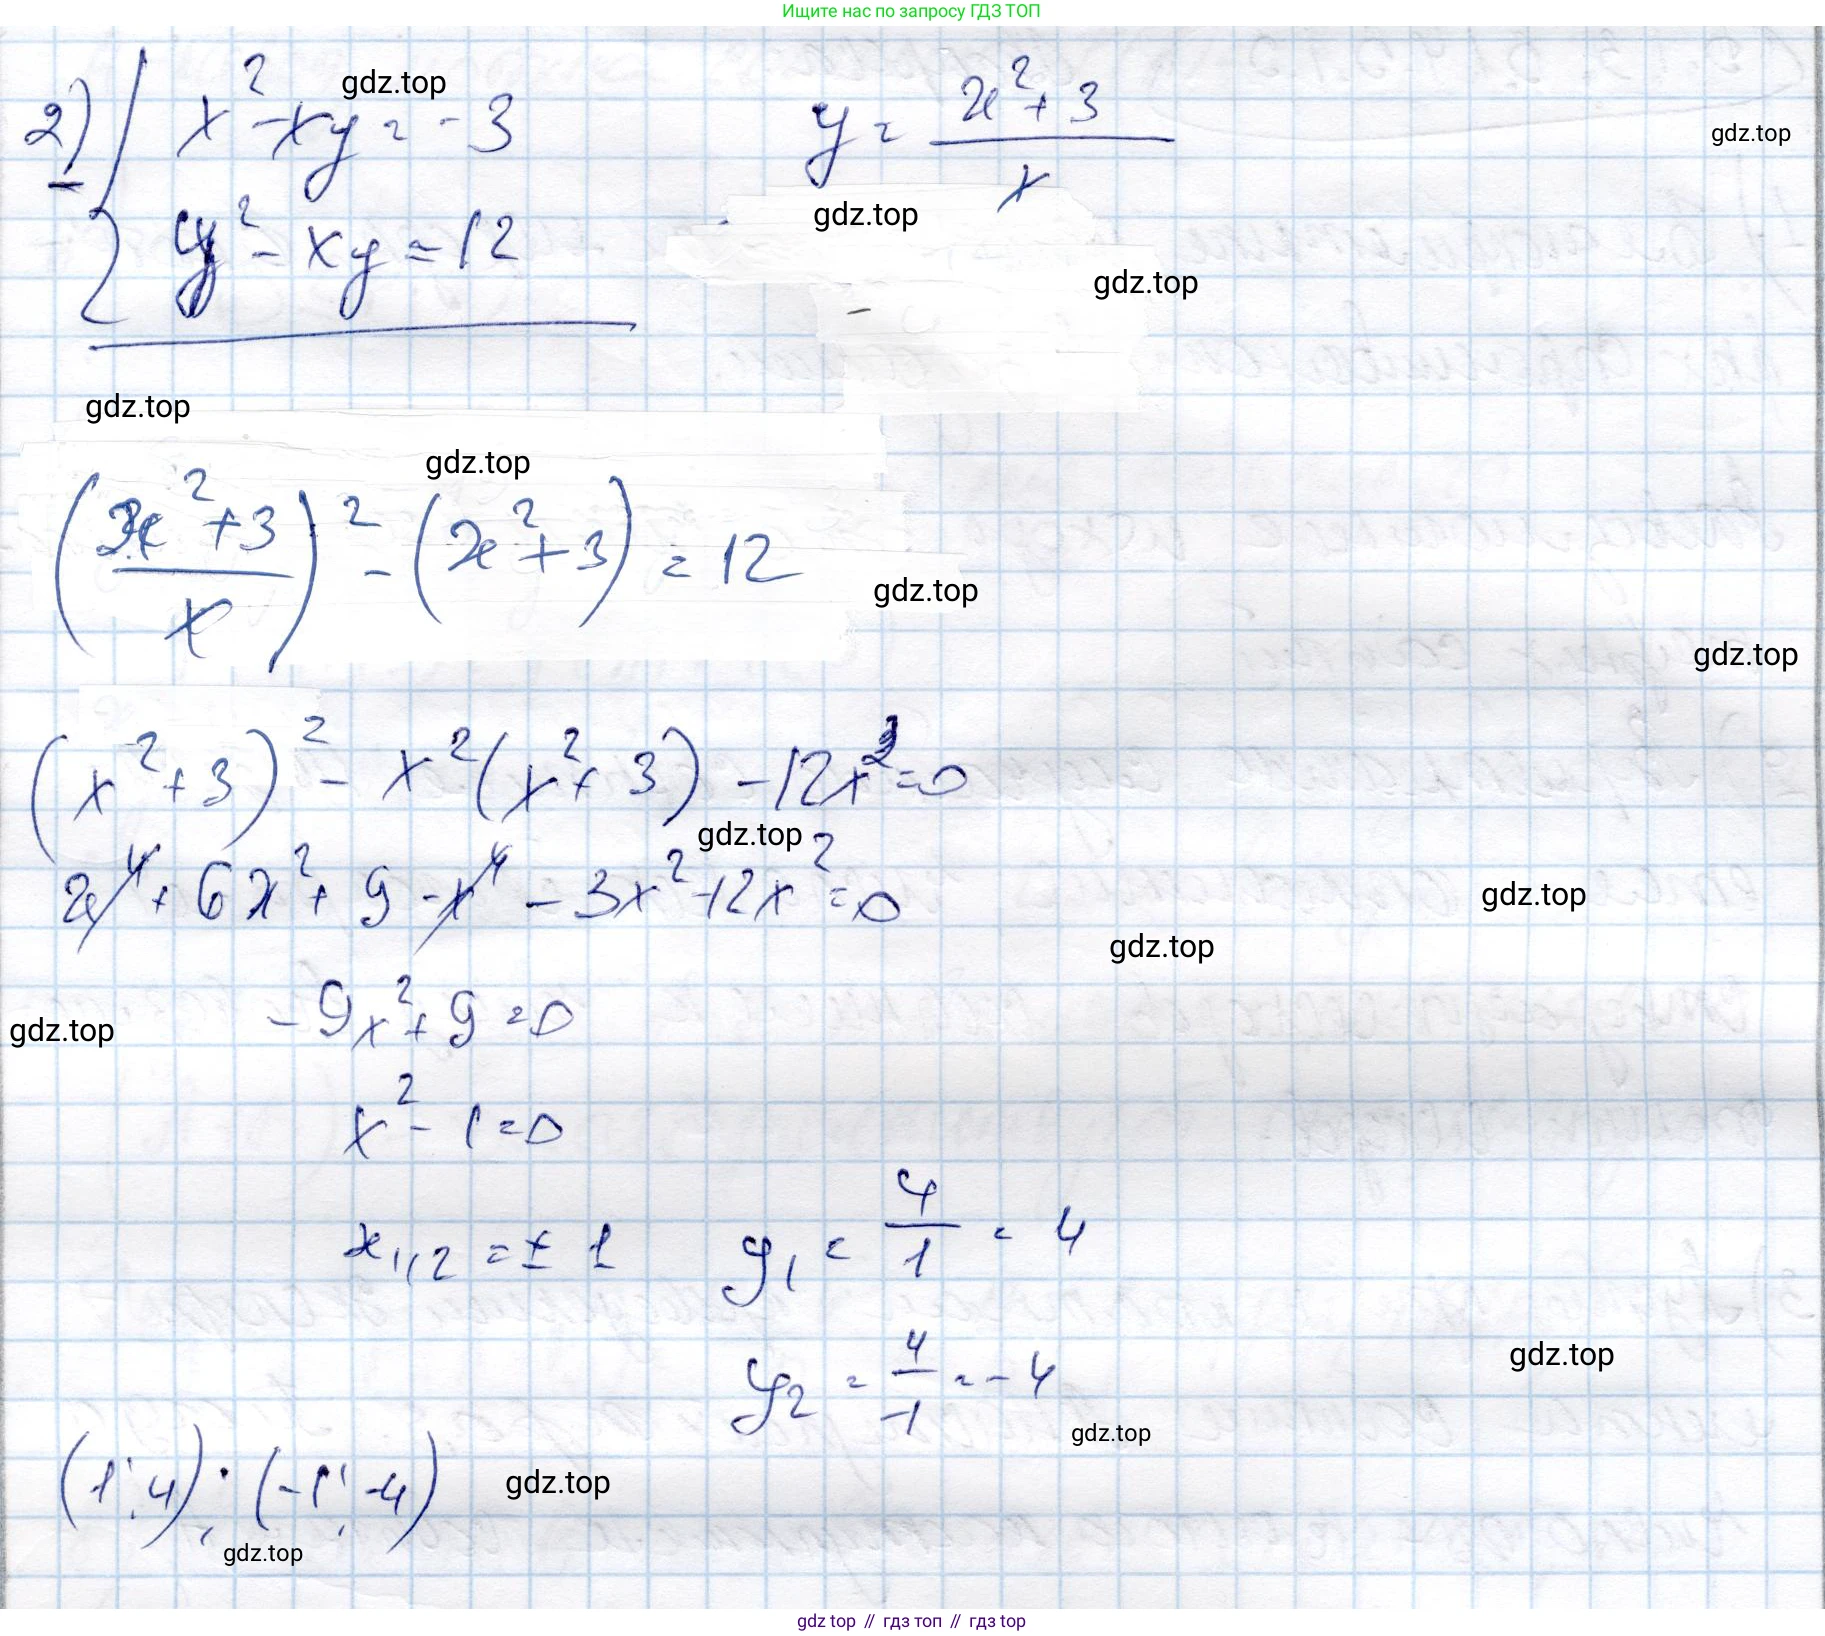 Ищите нас по запросу ГДЗ ТОП
2) { x² - xy = -3
y = (x² + 3)/x
gdz.top
gdz.top
y² - xy = 12
gdz.top
gdz.top
gdz.top
gdz.top
((x² + 3)/x)² - (x² + 3) = 12
gdz.top
gdz.top
(x² + 3)² - x²(x² + 3) - 12x² = 0
gdz.top
x⁴ + 6x² + 9 - x⁴ - 3x² - 12x² = 0
gdz.top
gdz.top
-9x² + 9 = 0
gdz.top
x² - 1 = 0
x₁,₂ = ± 1
y₁ = 4/1 = 4
y₂ = 4/-1 = -4
gdz.top
gdz.top
(1; 4); (-1; -4)
gdz.top
gdz.top
gdz top // гдз топ // гдз top